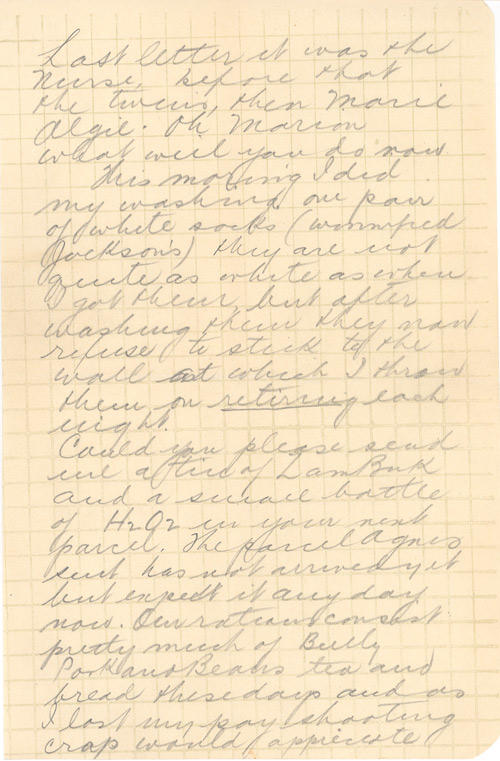 Last letter it was the
Nurse, before that
the twins, then Marie
Algie. Oh, Marion
what will you do now.
This morning I did
my washing one pair
of white socks (Winnifred
Jackson's) they are not
quite as white as when
I got them, but after
washing them they now
refuse to stick to the
wall at which I throw
them on retiring each
night.
Could you please send
me a tin of ZamBuk
and a small bottle
of H2O2 in your next
parcel. The parcel Agnes
sent has not arrived yet
but expect it any day
now. Our rations consist
pretty much of Bully
Pork and Beans tea and
bread these days and as
I lost my pay shooting
crap would appreciate